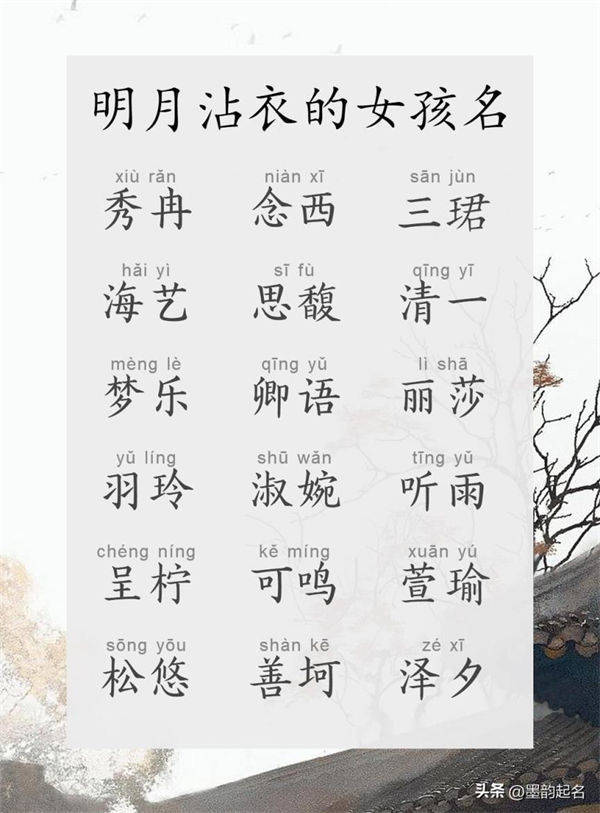 明月沾衣的女孩名
xiù rǎn niàn xī sān jùn
秀冉 念西 三珺
hǎi yì sī fù qīng yī
海艺 思馥 清一
mèng lè qīng yǔ lì shā
梦乐 卿语 丽莎
yǔ líng shū wǎn tīng yǔ
羽玲 淑婉 听雨
chéng níng kě míng xuān yú
呈柠 可鸣 萱瑜
sōng yōu shàn kē zé xī
松悠 善坷 泽夕
头条 @墨韵起名